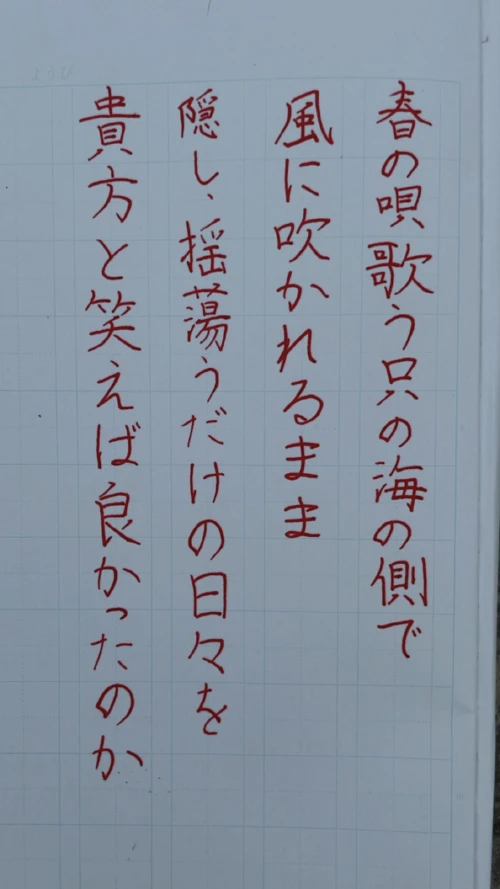 春の唄歌う只の海の側で
風に吹かれるまま
隠し、揺蕩うだけの日々を
貴方と笑えば良かったのか